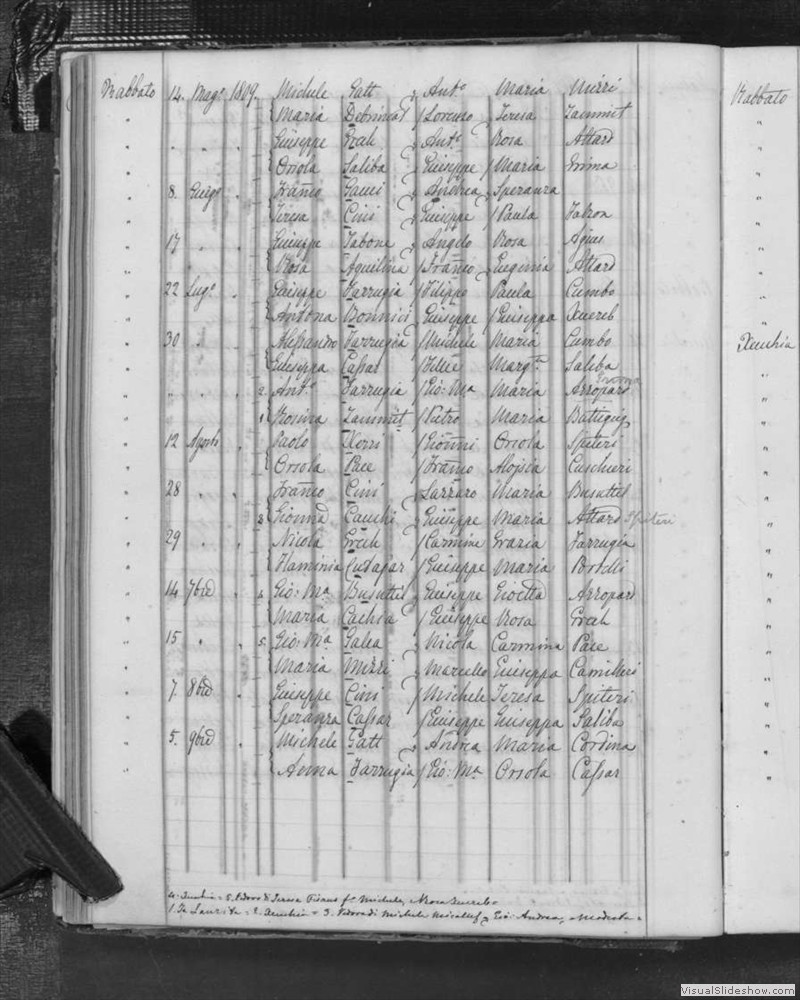 Rabbato 14. Mag.o 1809. Michele Gatt Ant.o Maria Mizzi Rabbato
Maria Debrincat Lorenzo Teresa Zammit
Giuseppe Grech Ant.o Rosa Attard
Orsola Saliba Giuseppe Maria Grima
8. Giug.o Franco Gauci Andrea Speranza
Teresa Cini Giuseppe Paula Falzon
17 Giuseppe Tabone Angelo Rosa Agius
Rosa Aquilina Franco Eugenia Attard
22 Lug.o Giuseppe Farrugia Filippo Paula Cumbo
Antona Bonnici Giuseppe Giuseppa Xuereb
30 Alessandro Farrugia Michele Maria Cumbo Xeuchia
Giuseppa Cassar Felice Marg.ta Saliba
2. Ant.o Farrugia Gio: Ma Maria Arropard
1. Rosina Zammit Pietro Maria Battiguj
12 Agosto Paolo Xerri Gionni Orsola Spiteri
Orsola Pace Franco Aloisia Cuschieri
28 Franco Cini Lazzaro Maria Busuttil
3. Gionna Cauchi Giuseppe Maria Attard Spiteri
29 Nicola Grech Carmine Grazia Farrugia
Flaminia Cutajar Giuseppe Maria Portelli
14 7bre 4. Gio: Ma Busuttil Giuseppe Gioetta Arropard
Maria Cachia Giuseppe Rosa Grech
15 5. Gio: Ma Galea Nicola Carmina Pace
Maria Mizzi Marcello Giuseppa Camilleri
7. 8bre Giuseppe Cini Michele Teresa Spiteri
Speranza Cassar Giuseppe Giuseppa Saliba
5. 9bre Michele Gatt Andrea Maria Cordina
Anna Farrugia Gio: Ma Orsola Cassar
4. 5. Vedovo di Teresa Pisani Michele, Rosa
2. Xeuchia 3. Vedova di Michele Gio: Andrea, Modesta
VisualSlideshow.com